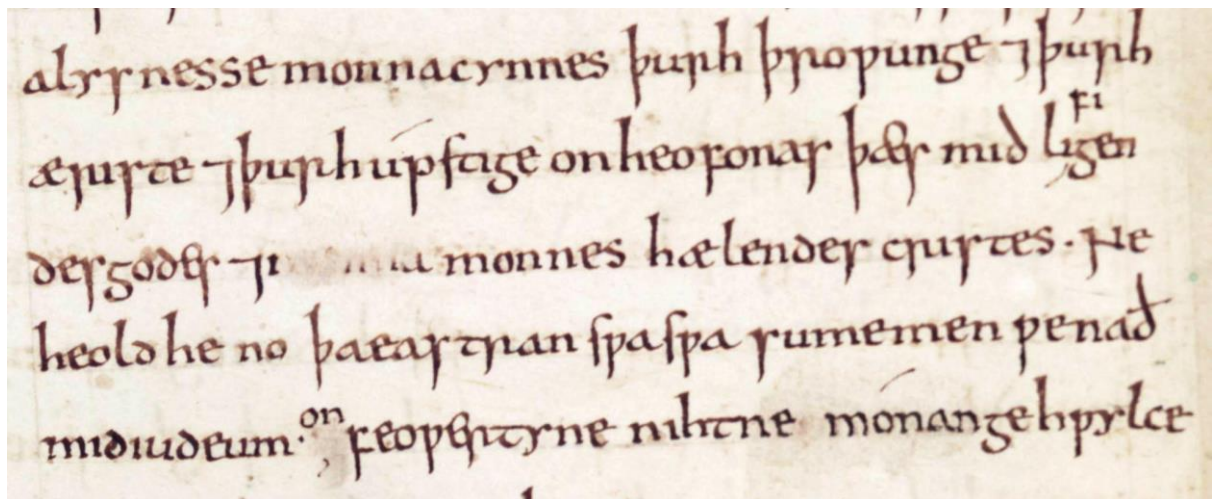 alysnesse monnacynnes þurh þroƿunge ⁊ þurh
æriste ⁊ þurh úpstige on heofonas þæs mid lifigen
des godes ⁊ monnes hælendes cristes. Ne
heold he no þa eastran sƿa sƿa sume men ƿenað
mid iudeum · on feoƿertyne nihtne mónan gehƿylce